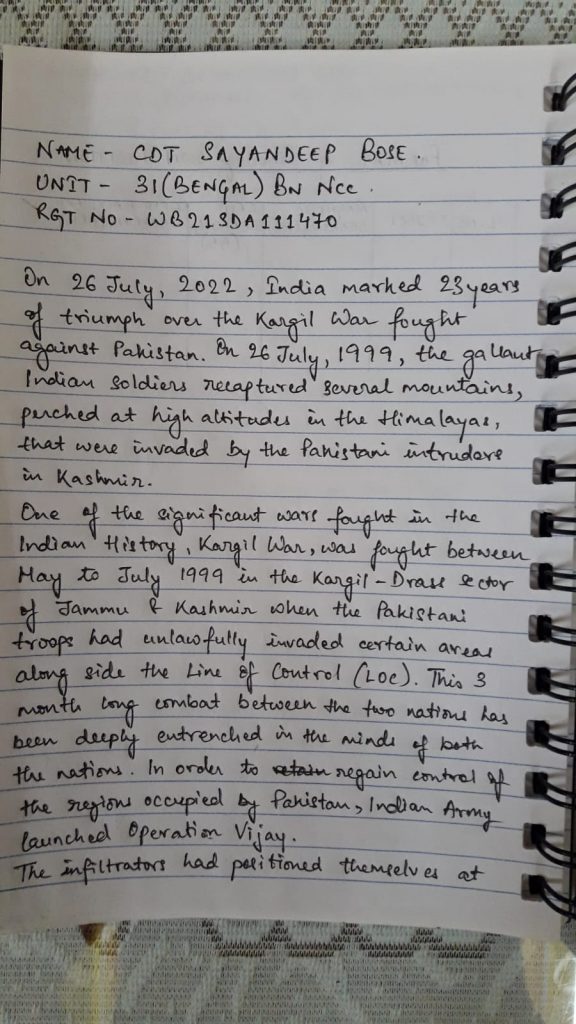 NAME - CDT SAYANDEEP BOSE.
UNIT - 31(BENGAL) BN NCC.
RGT NO - WB21SDA111470
On 26 July, 2022, India marked 23years
of triumph over the Kargil War fought
against Pakistan. On 26 July, 1999, the gallant
Indian soldiers recaptured several mountains,
perched at high altitudes in the Himalayas,
that were invaded by the Pakistani intruders
in Kashmir.
One of the significant wars fought in the
Indian History, Kargil War, was fought between
May to July 1999 in the Kargil-Drass sector
of Jammu & Kashmir when the Pakistani
troops had unlawfully invaded certain areas
along side the Line of Control (LOC). This 3
month long combat between the two nations has
been deeply entrenched in the minds of both
the nations. In order to retain regain control of
the regions occupied by Pakistan, Indian Army
launched Operation Vijay.
The infiltrators had positioned themselves at